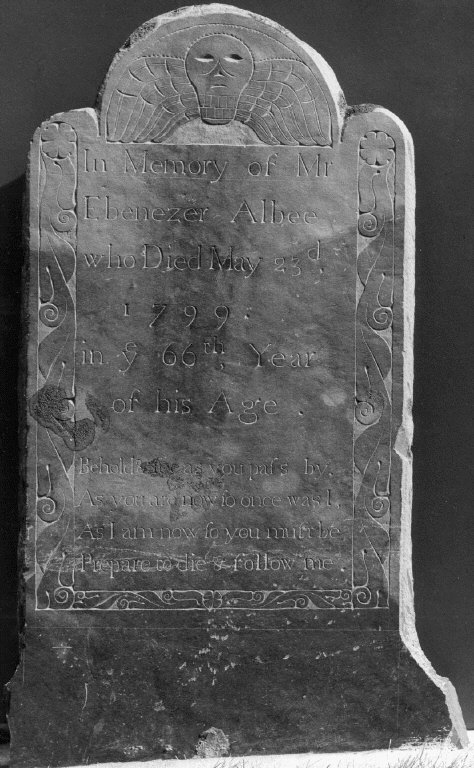 In Memory of Mr
Ebenezer Albee
who Died May 23d,
1799:
in yͤ 66th, Year
of his Age.
Behold & see as you paſs by,
As you are now ſo once was I,
As I am now ſo you muſt be
Prepare to die & follow me.